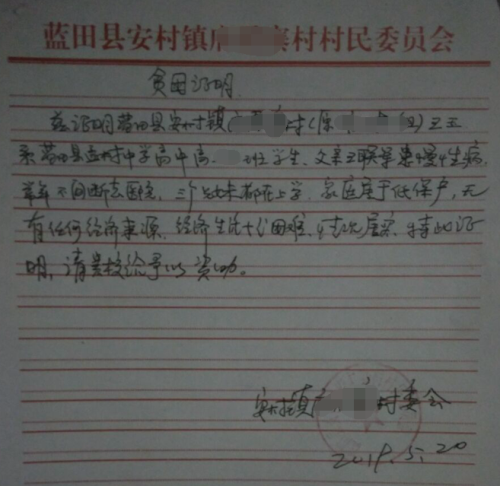 蓝田县安村镇 寨村村民委员会
贫困证明
兹证明蓝田县安村镇 村(原 组)王王
系蓝田县孟村中学高中高 班学生,父亲王联学患慢性病,
常年不间断去医院,三个姐妹都在上学,家庭属于低保户,无
有任何经济来源,经济生活十分困难,情况属实,特此证
明,请贵校给予以资助。
安村镇 村委会
2019.5.20